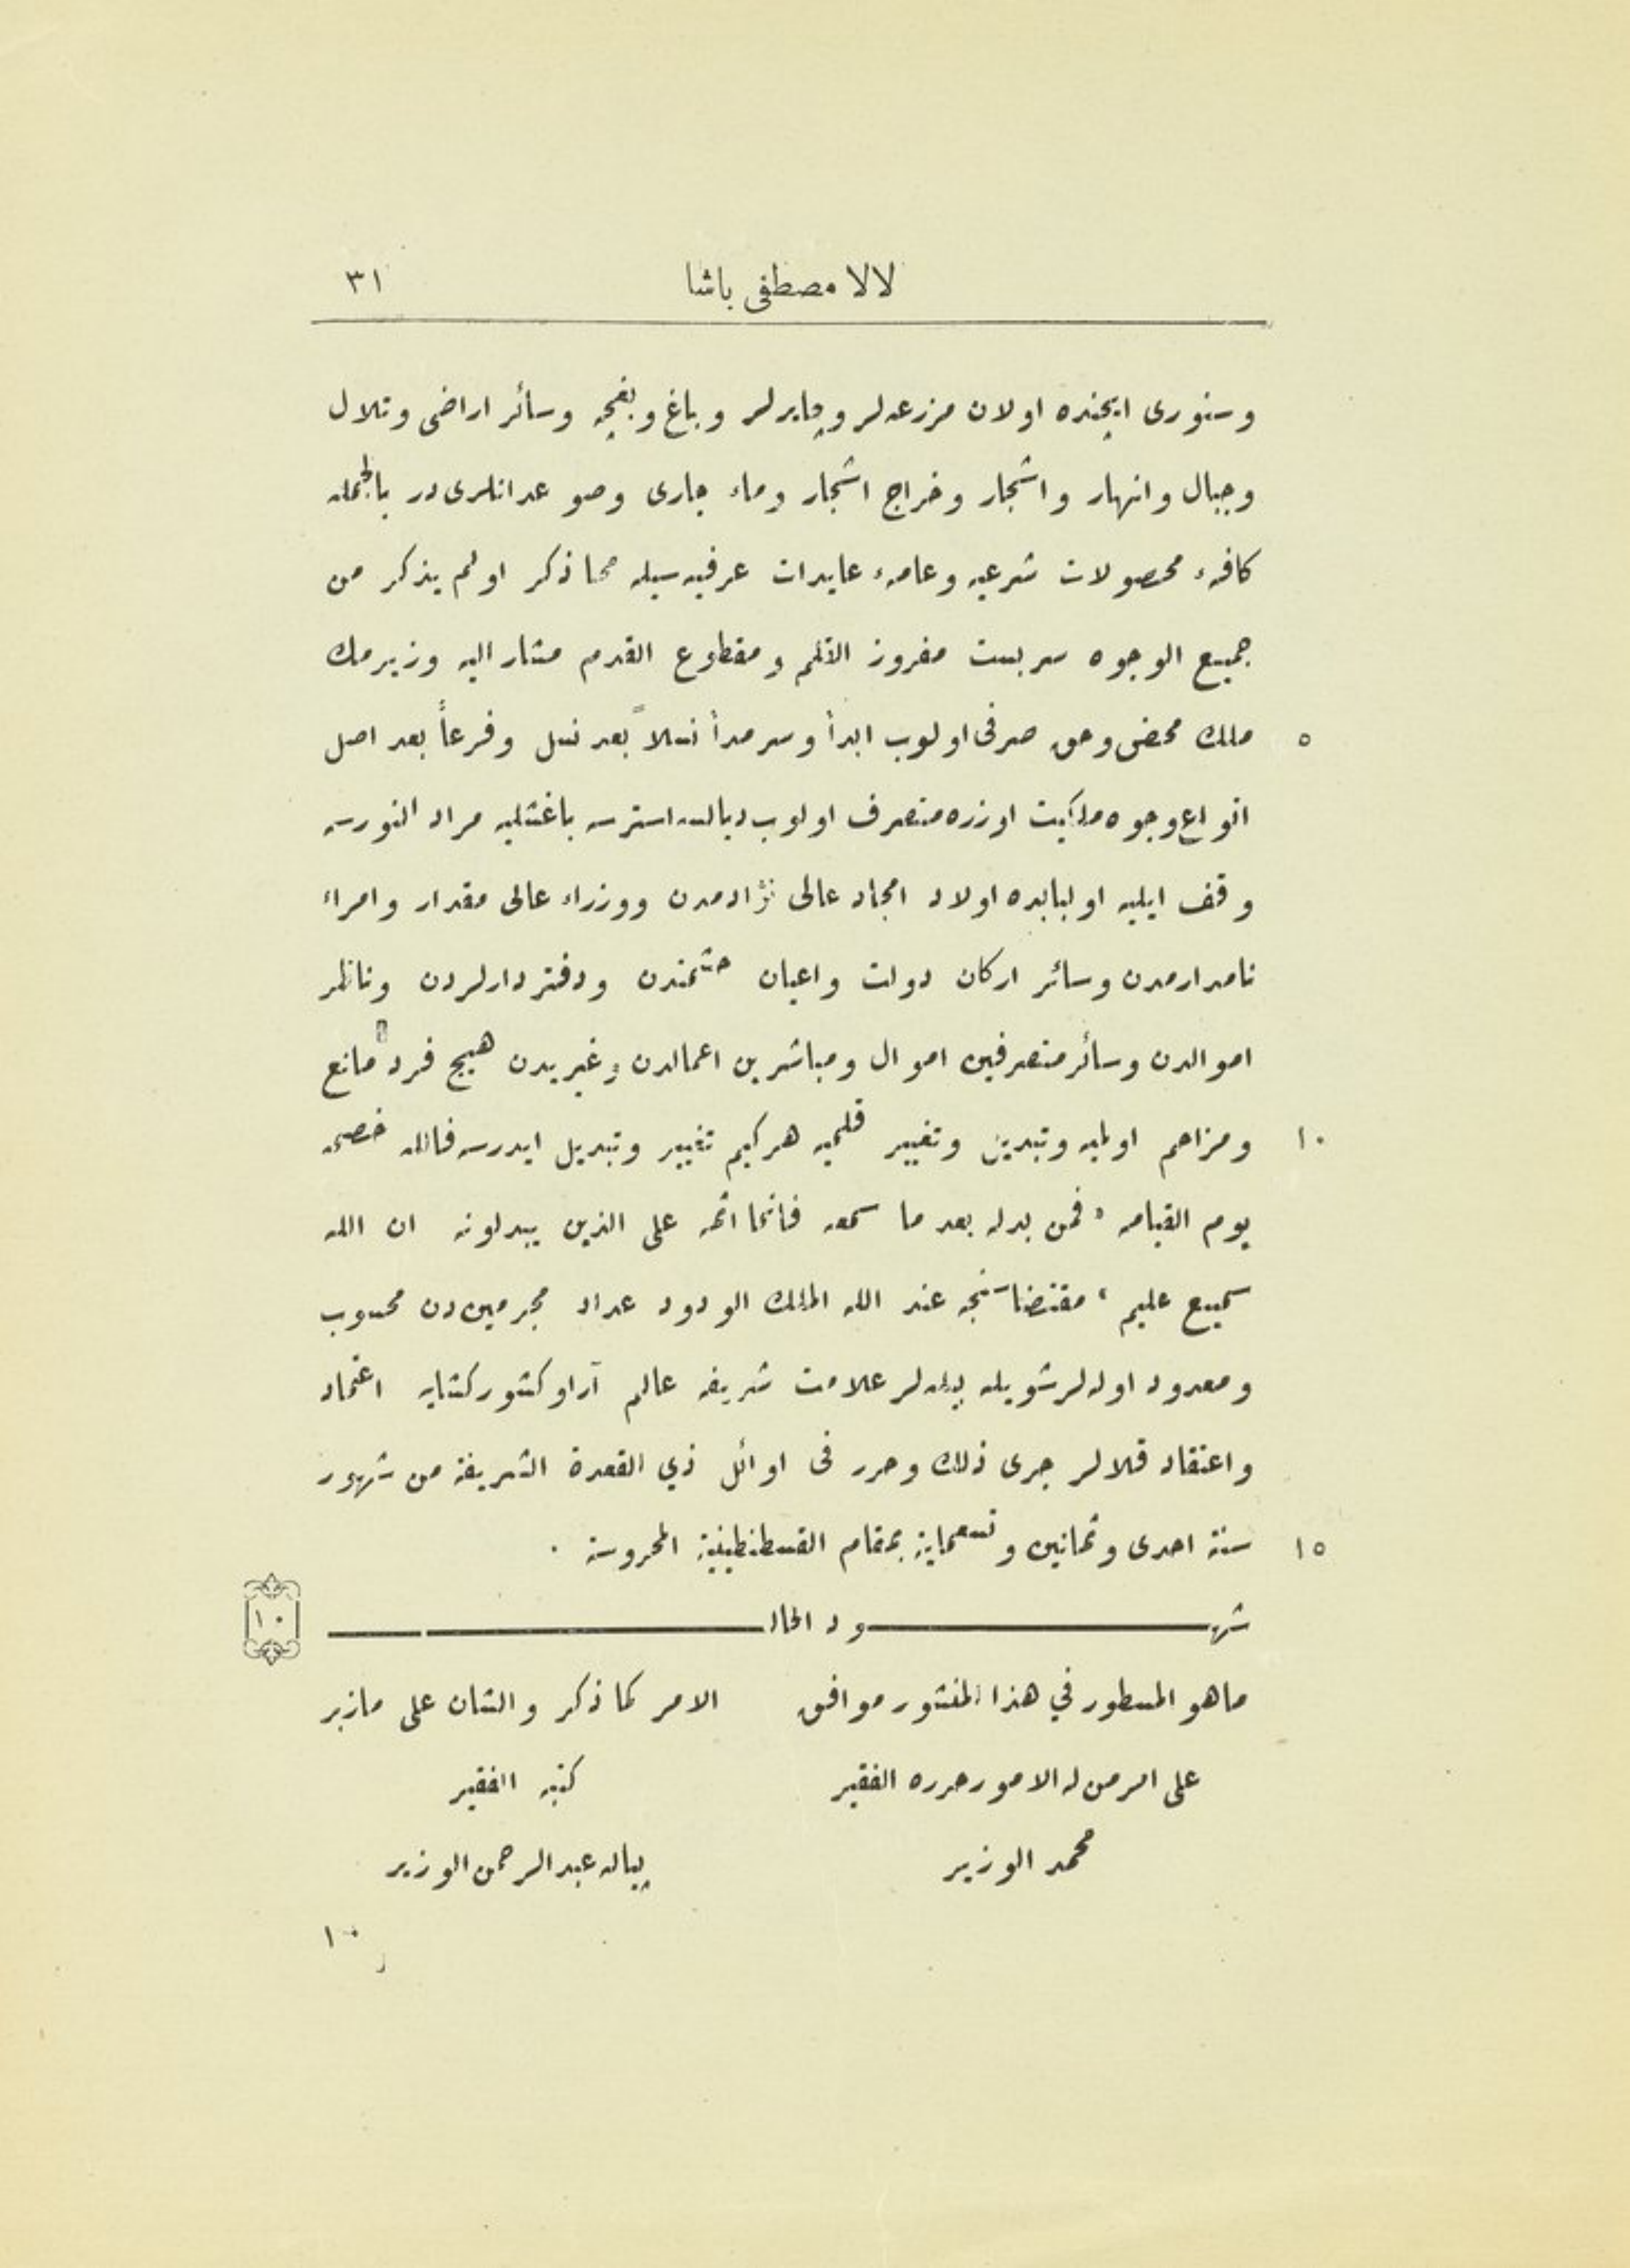 لالا مصطفى باشا ٣١
وسنورى ايچنده اولان مزرعه‌لر وچايرلر وباغ وبغچه وسائر اراضى وتلال
وجبال وانهار واشجار وخراج اشجار وماء جارى وصو عدانلرى در بالجمله
كافهء محصولات شرعيه وعامهء عايدات عرفيه سيله مما ذكر اولم يذكر من
جميع الوجوه سربست مفروز القلم ومقطوع القدم مشار اليه وزيرمك
٥ ملك محض وحق صرفى اولوب ابداً وسرمداً نسلاً بعد نسل وفرعاً بعد اصل
انواع وجوه ملكيت اوزره متصرف اولوب ديالسه استرسه باغشليه مراد النورسه
وقف ايليه اولبابده اولاد امجاد عالى نژادمدن ووزراء عالى مقدار وامراء
نامدارمدن وسائر اركان دولت واعيان حشمتدن ودفتردارلردن وناظر
اموالدن وسائر متصرفين اموال ومباشرين اعمالدن وغيريدن هيچ فرد مانع
١٠ ومزاحم اولميه وتبدين وتغيير قلميه هركيم تغيير وتبديل ايدرسه فالله خصمه
يوم القيامه « فمن بدله بعد ما سمعه فانما اثمه على الذين يبدلونه ان الله
سميع عليم » مقتضاسنجه عند الله الملك الودود عداد مجرمين دن محسوب
ومعدود اوله‌لر شويله بيله‌لر علامت شريفه عالم آراو كشور كشايه اعتماد
واعتقاد قلالر جرى ذلك وحرر فى اوائل ذي القعدة الشريفة من شهور
١٥ سنة احدى وثمانين وتسعماية بمقام القسطنطينية المحروسة .
شهـــود الحال ١٠
ماهو المسطور في هذا المنشور موافق الامر كما ذكر والشان على مازبر
على امر من له الامور حرره الفقير كتبه الفقير
محمد الوزير پياله عبد الرحمن الوزير
١٠